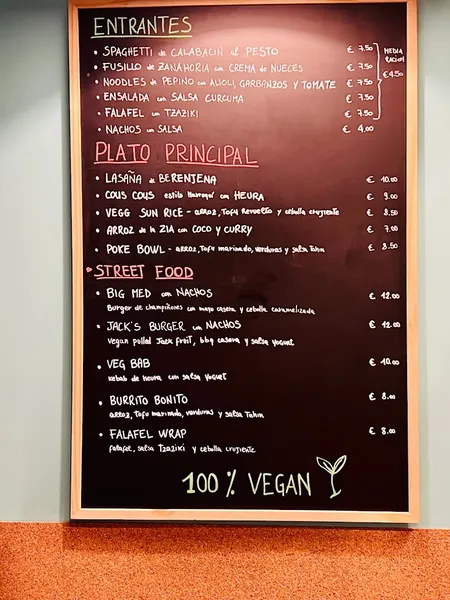 ENTRANTES
• SPAGHETTI de CALABACIN al PESTO € 7.50
• FUSILLO de ZANAHORIA con CREMA de NUECES € 7.50
• NOODLES de PEPINO con ALIOLI, GARBANZOS y TOMATE € 7.50
• ENSALADA con SALSA CURCUMA € 7.50
• FALAFEL con TZAZIKI € 7.50
MEDIA
RACION
€ 4.50
• NACHOS con SALSA € 4.00
PLATO PRINCIPAL
• LASAÑA de BERENJENA € 10.00
• COUS COUS estilo Marroquí con HEURA € 9.00
• VEGG SUN RICE - arroz, Tofu revuelto y cebolla crujiente € 8.50
• ARROZ de la ZIA con COCO y CURRY € 7.00
• POKE BOWL - arroz, Tofu marinado, verduras y salsa Tahin € 8.50
STREET FOOD
• BIG MED con NACHOS € 12.00
Burger de champiñones con mayo casera y cebolla caramelizada
• JACK'S BURGER con NACHOS € 12.00
Vegan pulled Jack fruit, bbq casera y salsa yogurt
• VEG BAB € 10.00
kebab de heura con salsa yogurt
• BURRITO BONITO € 8.00
arroz, Tofu marinado, verduras y salsa Tahin
• FALAFEL WRAP € 8.00
falafel, salsa Tzaziki y cebolla crujiente
100 % VEGAN